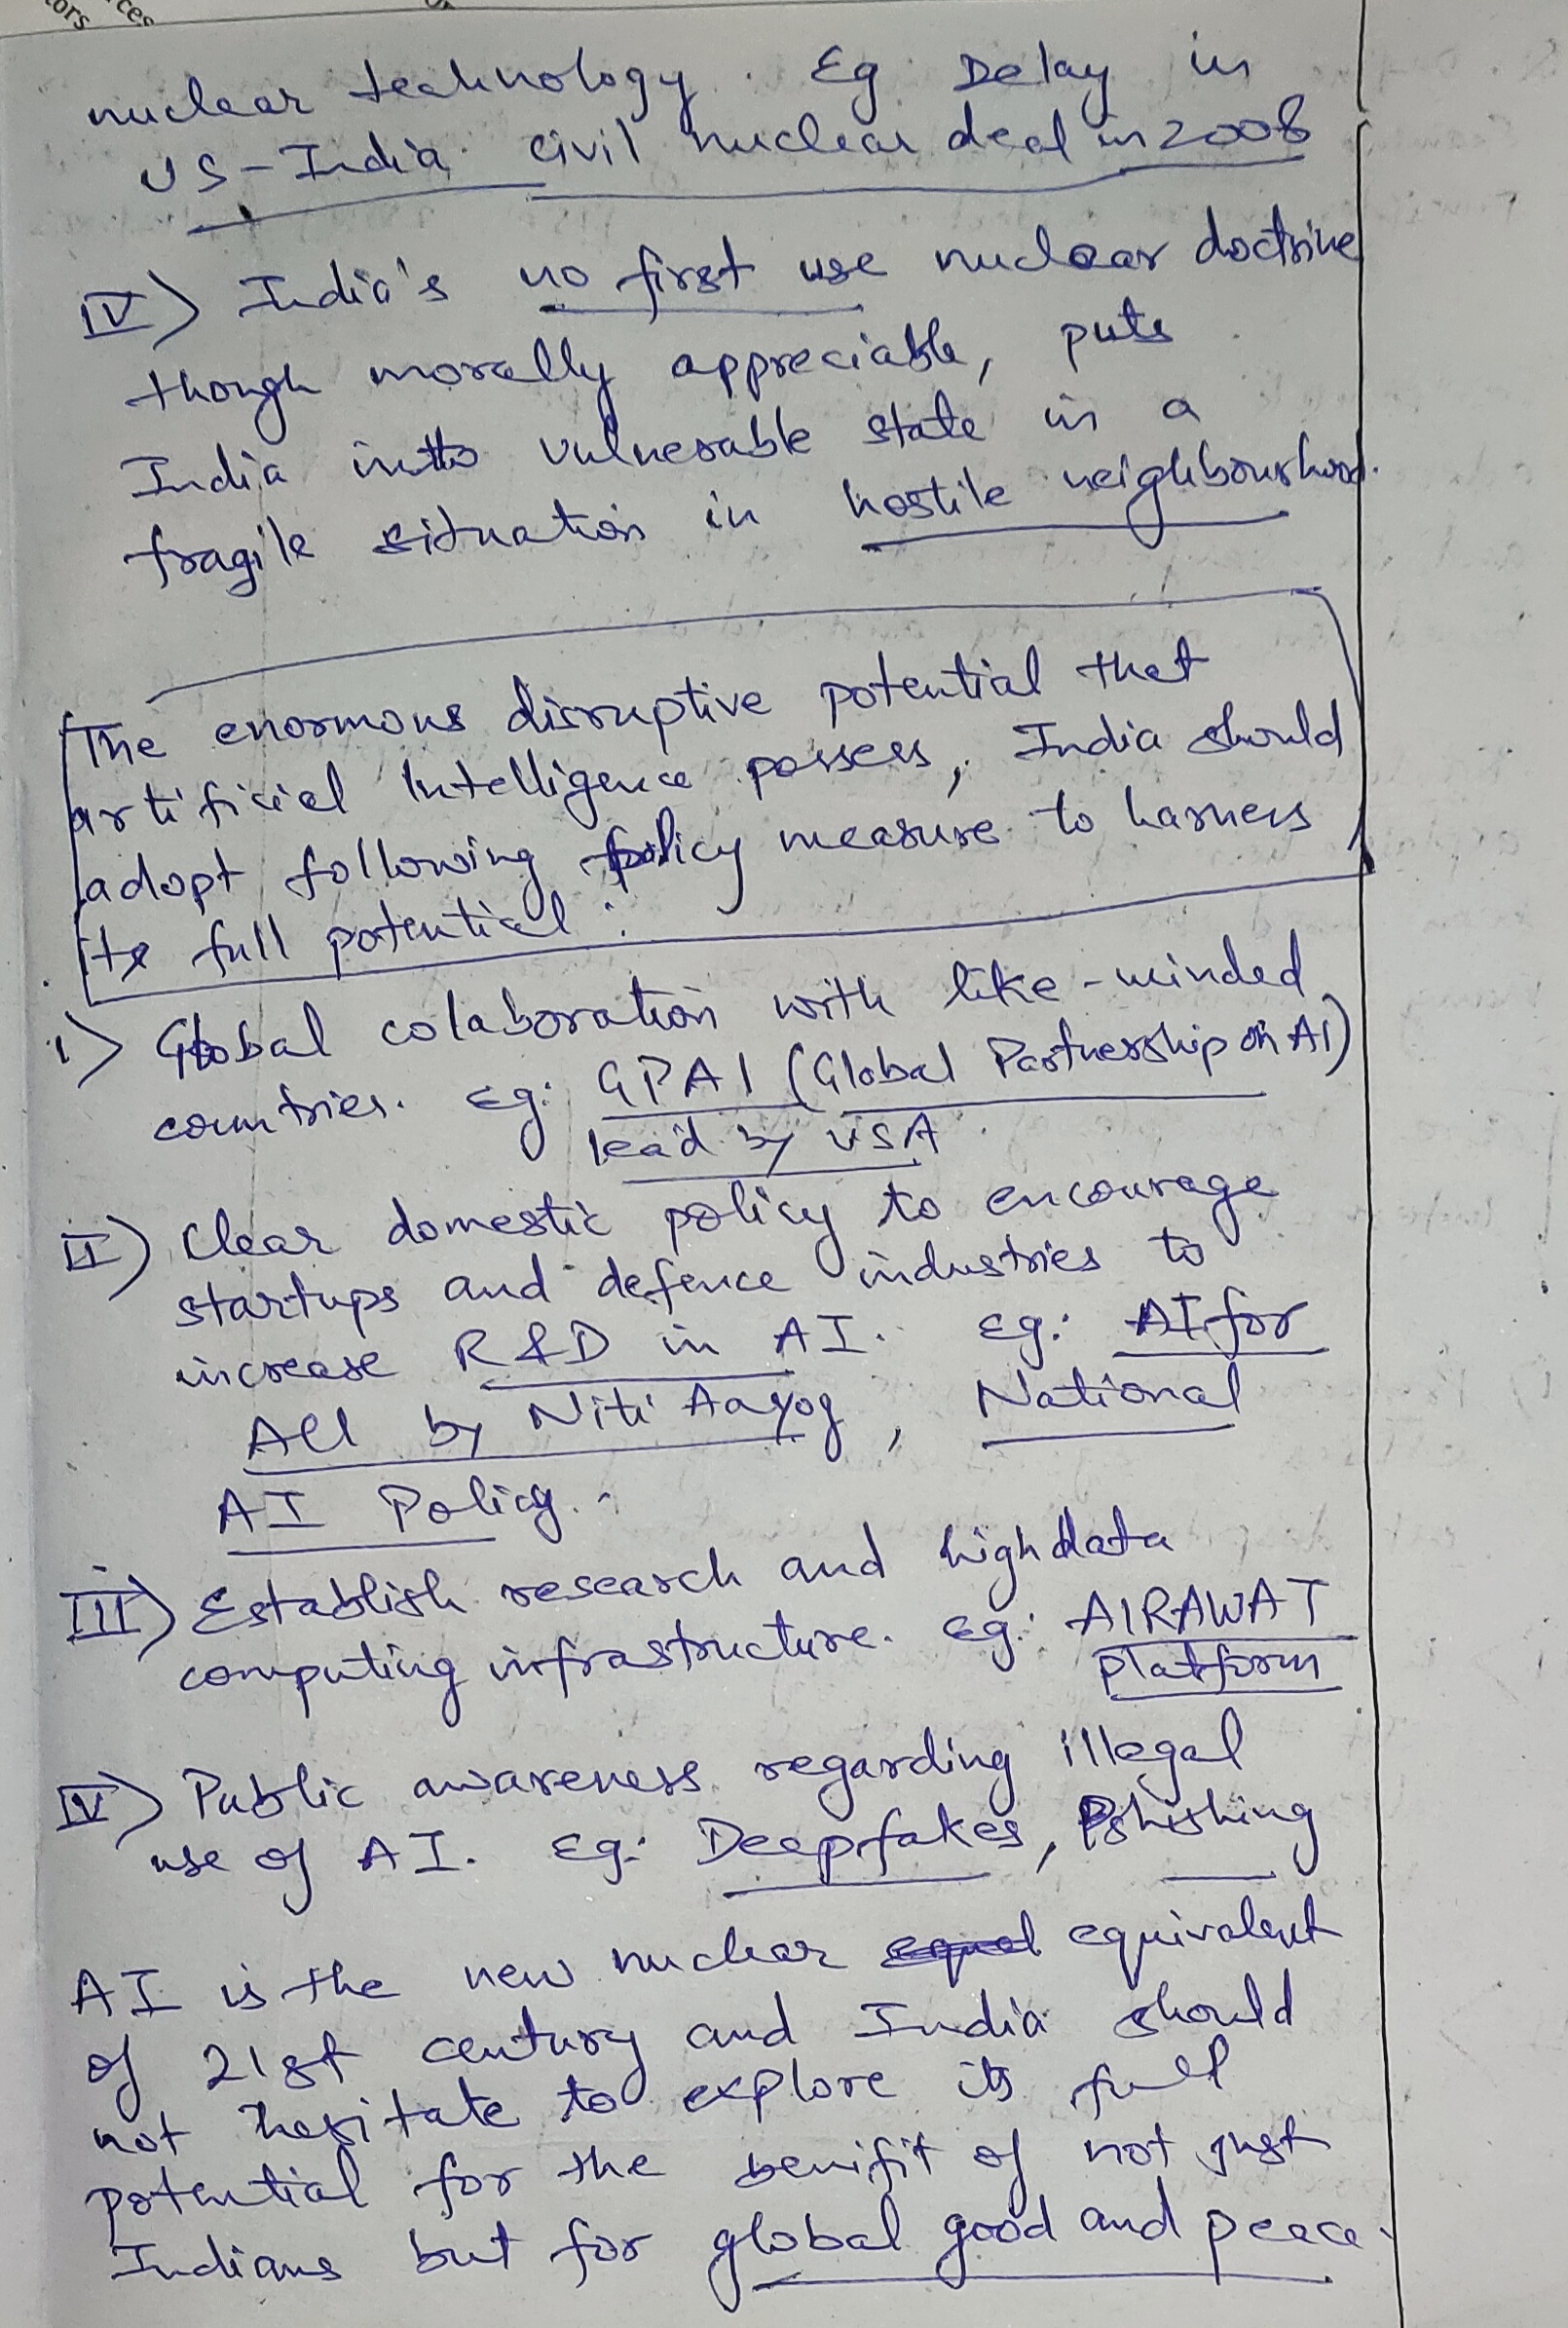 tors
ces
nuclear technology. Eg Delay in
US-India civil nuclear deal in 2008
IV) India's no first use nuclear doctrine
though morally appreciable, puts
India into vulnerable state in a
fragile situation in hostile neighbourhood.
The enormous disruptive potential that
artificial Intelligence possess, India should
adopt following policy measure to harness
its full potential:
i) Global colaboration with like-minded
countries. Eg: GPAI (Global Partnership on AI)
lead by USA.
II) Clear domestic policy to encourage
startups and defence industries to
increase R&D in AI. Eg: AI for
All by Niti Aayog, National
AI Policy.
III) Establish research and high data
computing infrastructure. Eg: AIRAWAT
platform
IV) Public awareness regarding illegal
use of AI. Eg: Deepfakes, Phishing
AI is the new nuclear equal equivalent
of 21st century and India should
not hesitate to explore its full
potential for the benifit of not just
Indians but for global good and peace.